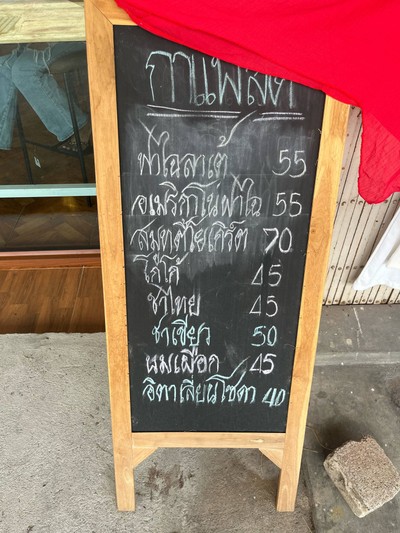 กาแฟสด
ลาเต้ 55
อเมริกาโน่ 55
สมูทตี้โยเกิร์ต 70
โกโก้ 45
ชาไทย 45
ชาเขียว 50
นมเผือก 45
อิตาเลี่ยนโซดา 40